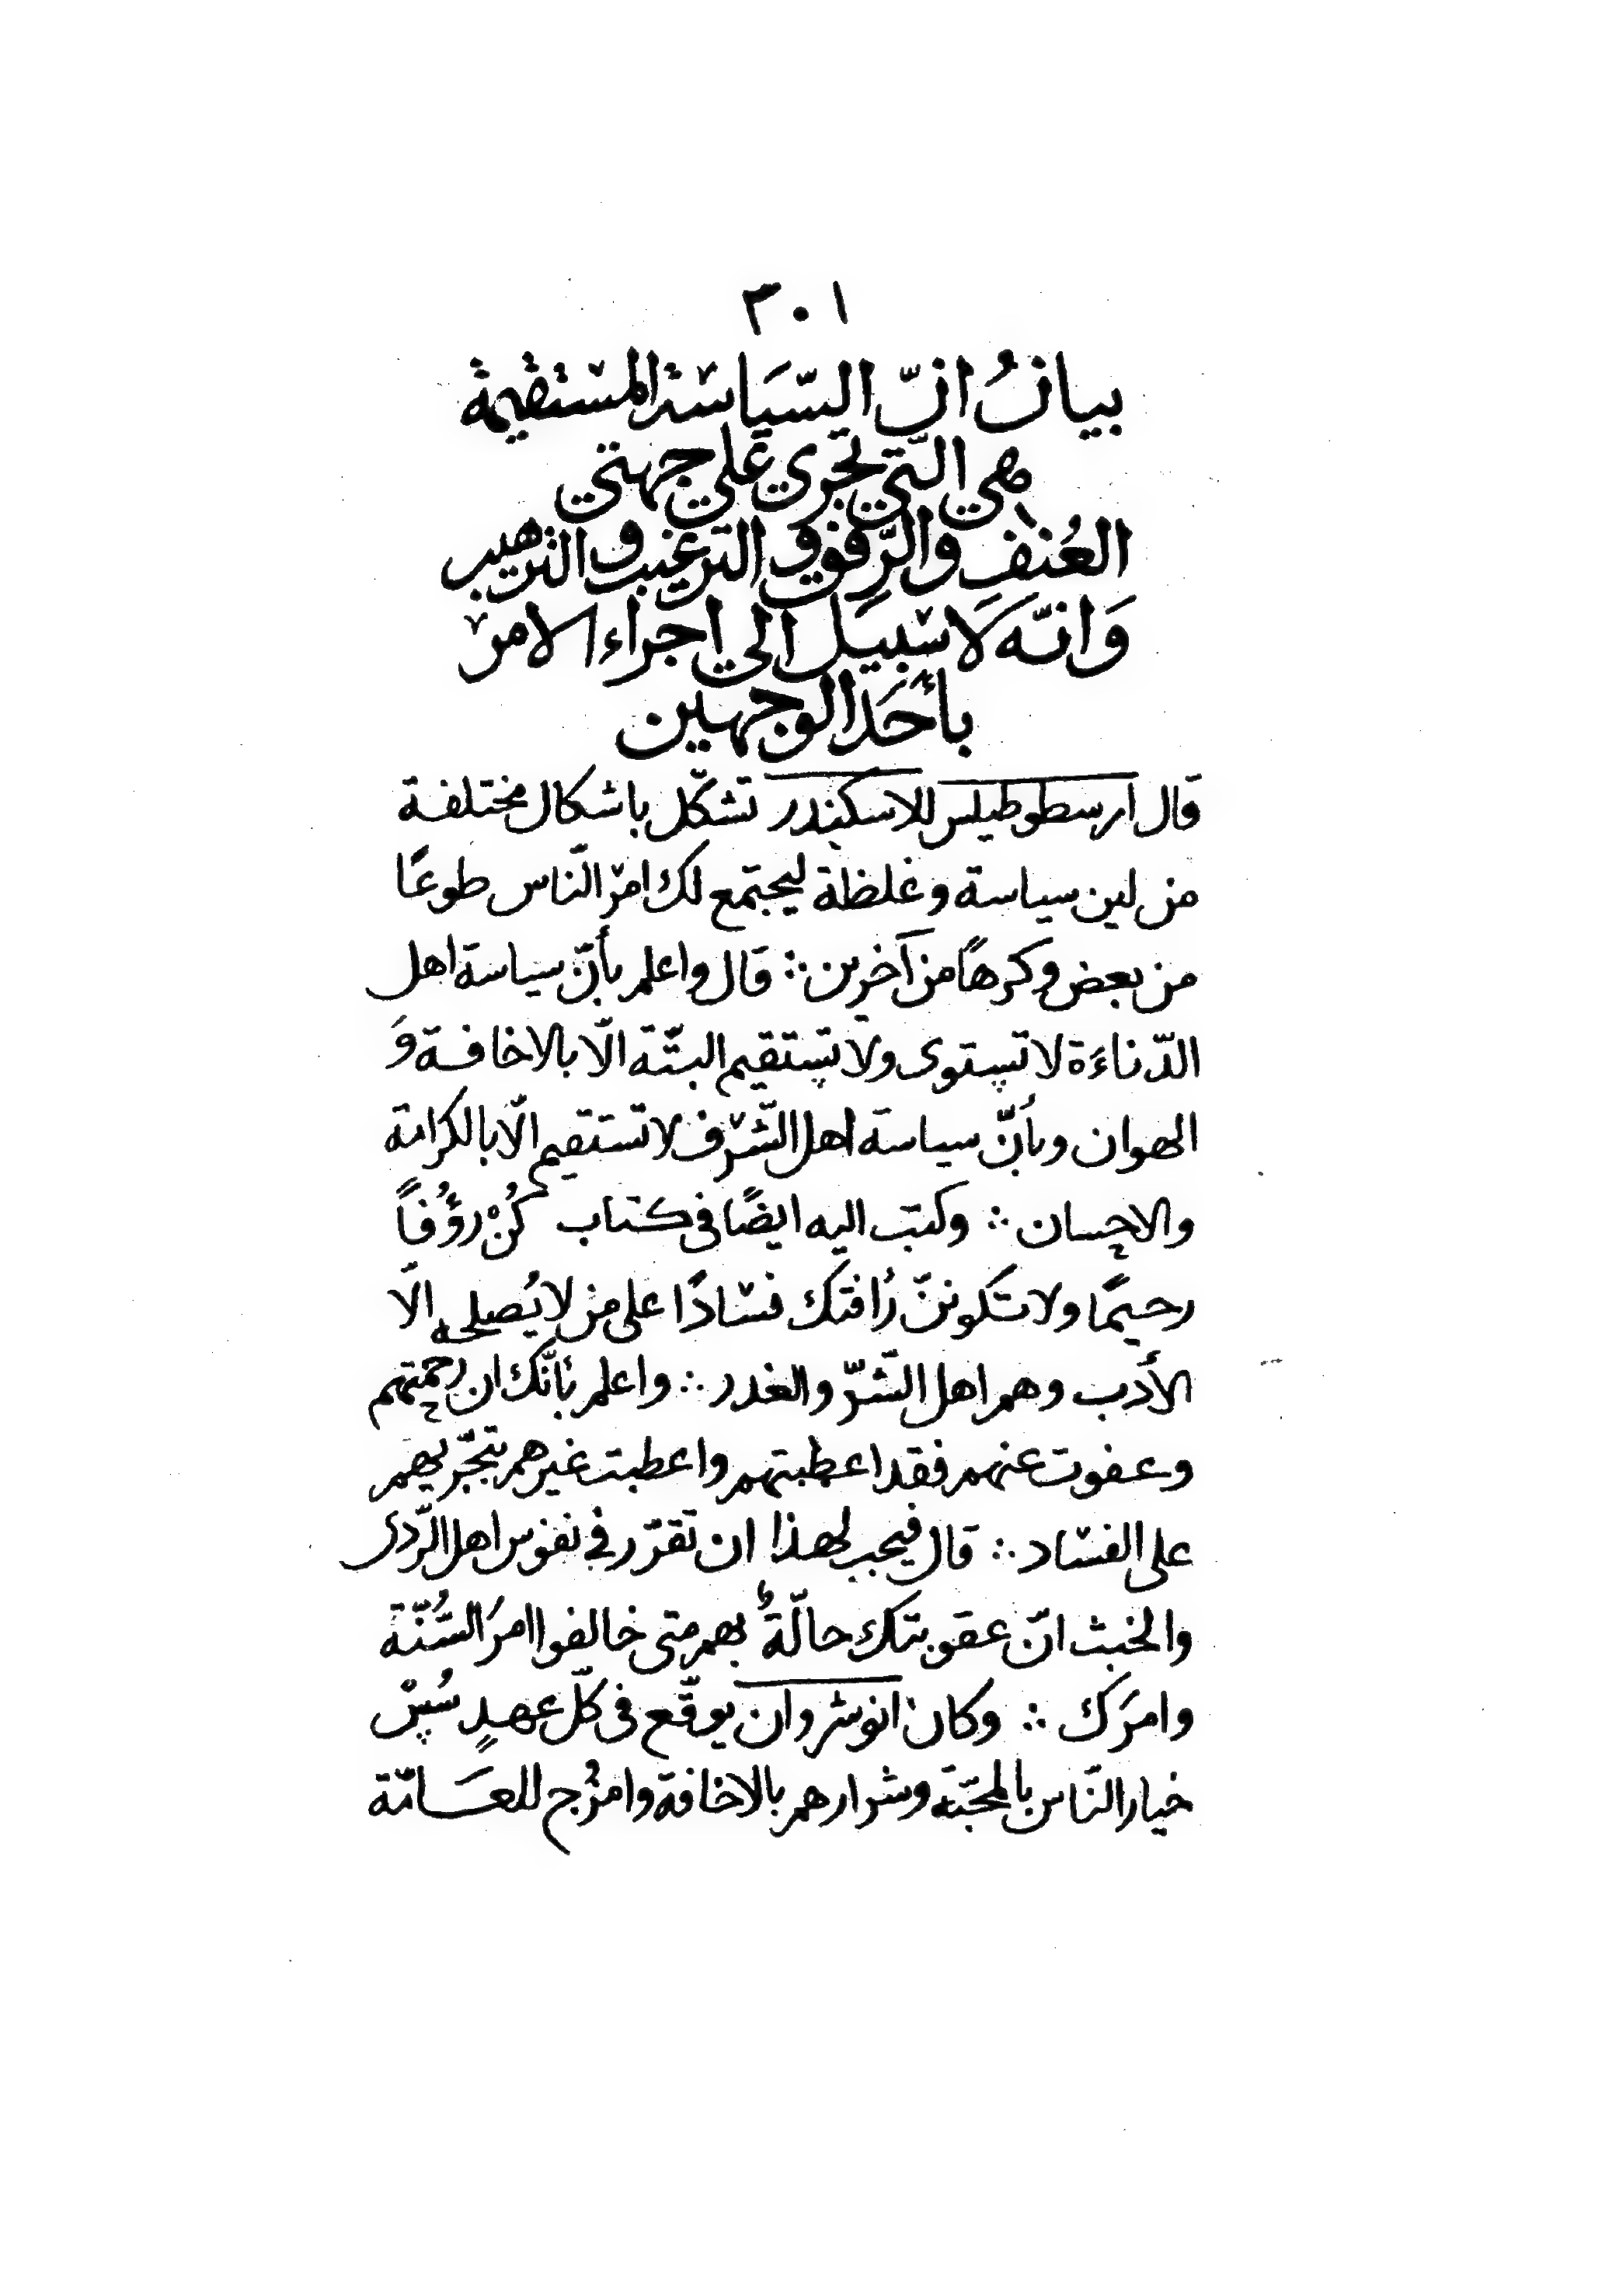 ٣٠١
بيانُ انّ السّيَاسة المستقيمة
هي الّتي تجري علي جهتي
العُنفِ والرِّفق و الترغيب و الترهيب
وَانّه لَاسبيَل الي اجراء الامر
بأحَد الوجهين
قال ارسطوطيلس للاسكندر تشكّل باشكال مختلفة
من لين سياسة وغلظة ليجتمع لك امر النّاس طوعًا
من بعض وكرهًا من آخرين ∴ قال واعلم بأنّ سياسة اهل
الدّناءَة لا تستوى ولا تستقيم البتّة الّا بالاخافة وَ
الهوان وبأنّ سياسة اهل الشّرف لا تستقيم الّا بالكرامة
والاحسان ∴ وكتب اليه ايضًا فى كتاب كُنْ رؤُفاً
رحيمًا ولا تكوننّ رأفتك فسادًا على من لا يُصلحه الّا
الأدب وهم اهل الشّرّ والغدر ∴ واعلم بأنّك ان رحمتهم
وعفوت عنهم فقد اعطبتهم واعطبت غيرهم بتجّريهم
على الفساد ∴ قال فيجب لهذا ان تقرّر في نفوس اهل الرّدى
والخبث انّ عقوبتك حالّةٌ بهم متى خالفوا امرَ السُّنّة
وامرَك ∴ وكان انوشروان يوقّع فى كلّ عهدٍ سُسْ
خيار النّاس بالمحبّة وشرارهم بالاخافة وامزُج للعَـامّة